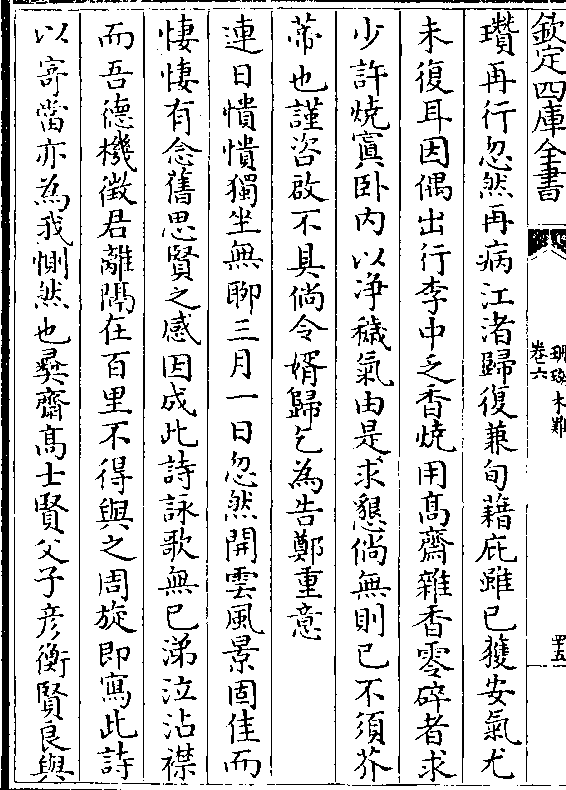 欽定四庫全書
珊瑚木難
卷六
四五
瓚再行忽然再病江渚歸復兼旬藉庇雖已獲安氣尤
未復耳因偶出行李中乏香燒用髙齋雜香零碎者求
少許燒寘卧内以净穢氣由是求懇倘無則已不須芥
蒂也謹咨啟不具倘令婿歸乞為告鄭重意
連日憒憒獨坐無聊三月一日忽然開雲風景固佳而
悽悽有念舊思賢之感因成此詩詠歌無已涕泣沾襟
而吾德機徵君離隔在百里不得與之周旋即寫此詩
以寄當亦為我惻然也彛齋髙士賢父子彦衡賢良與